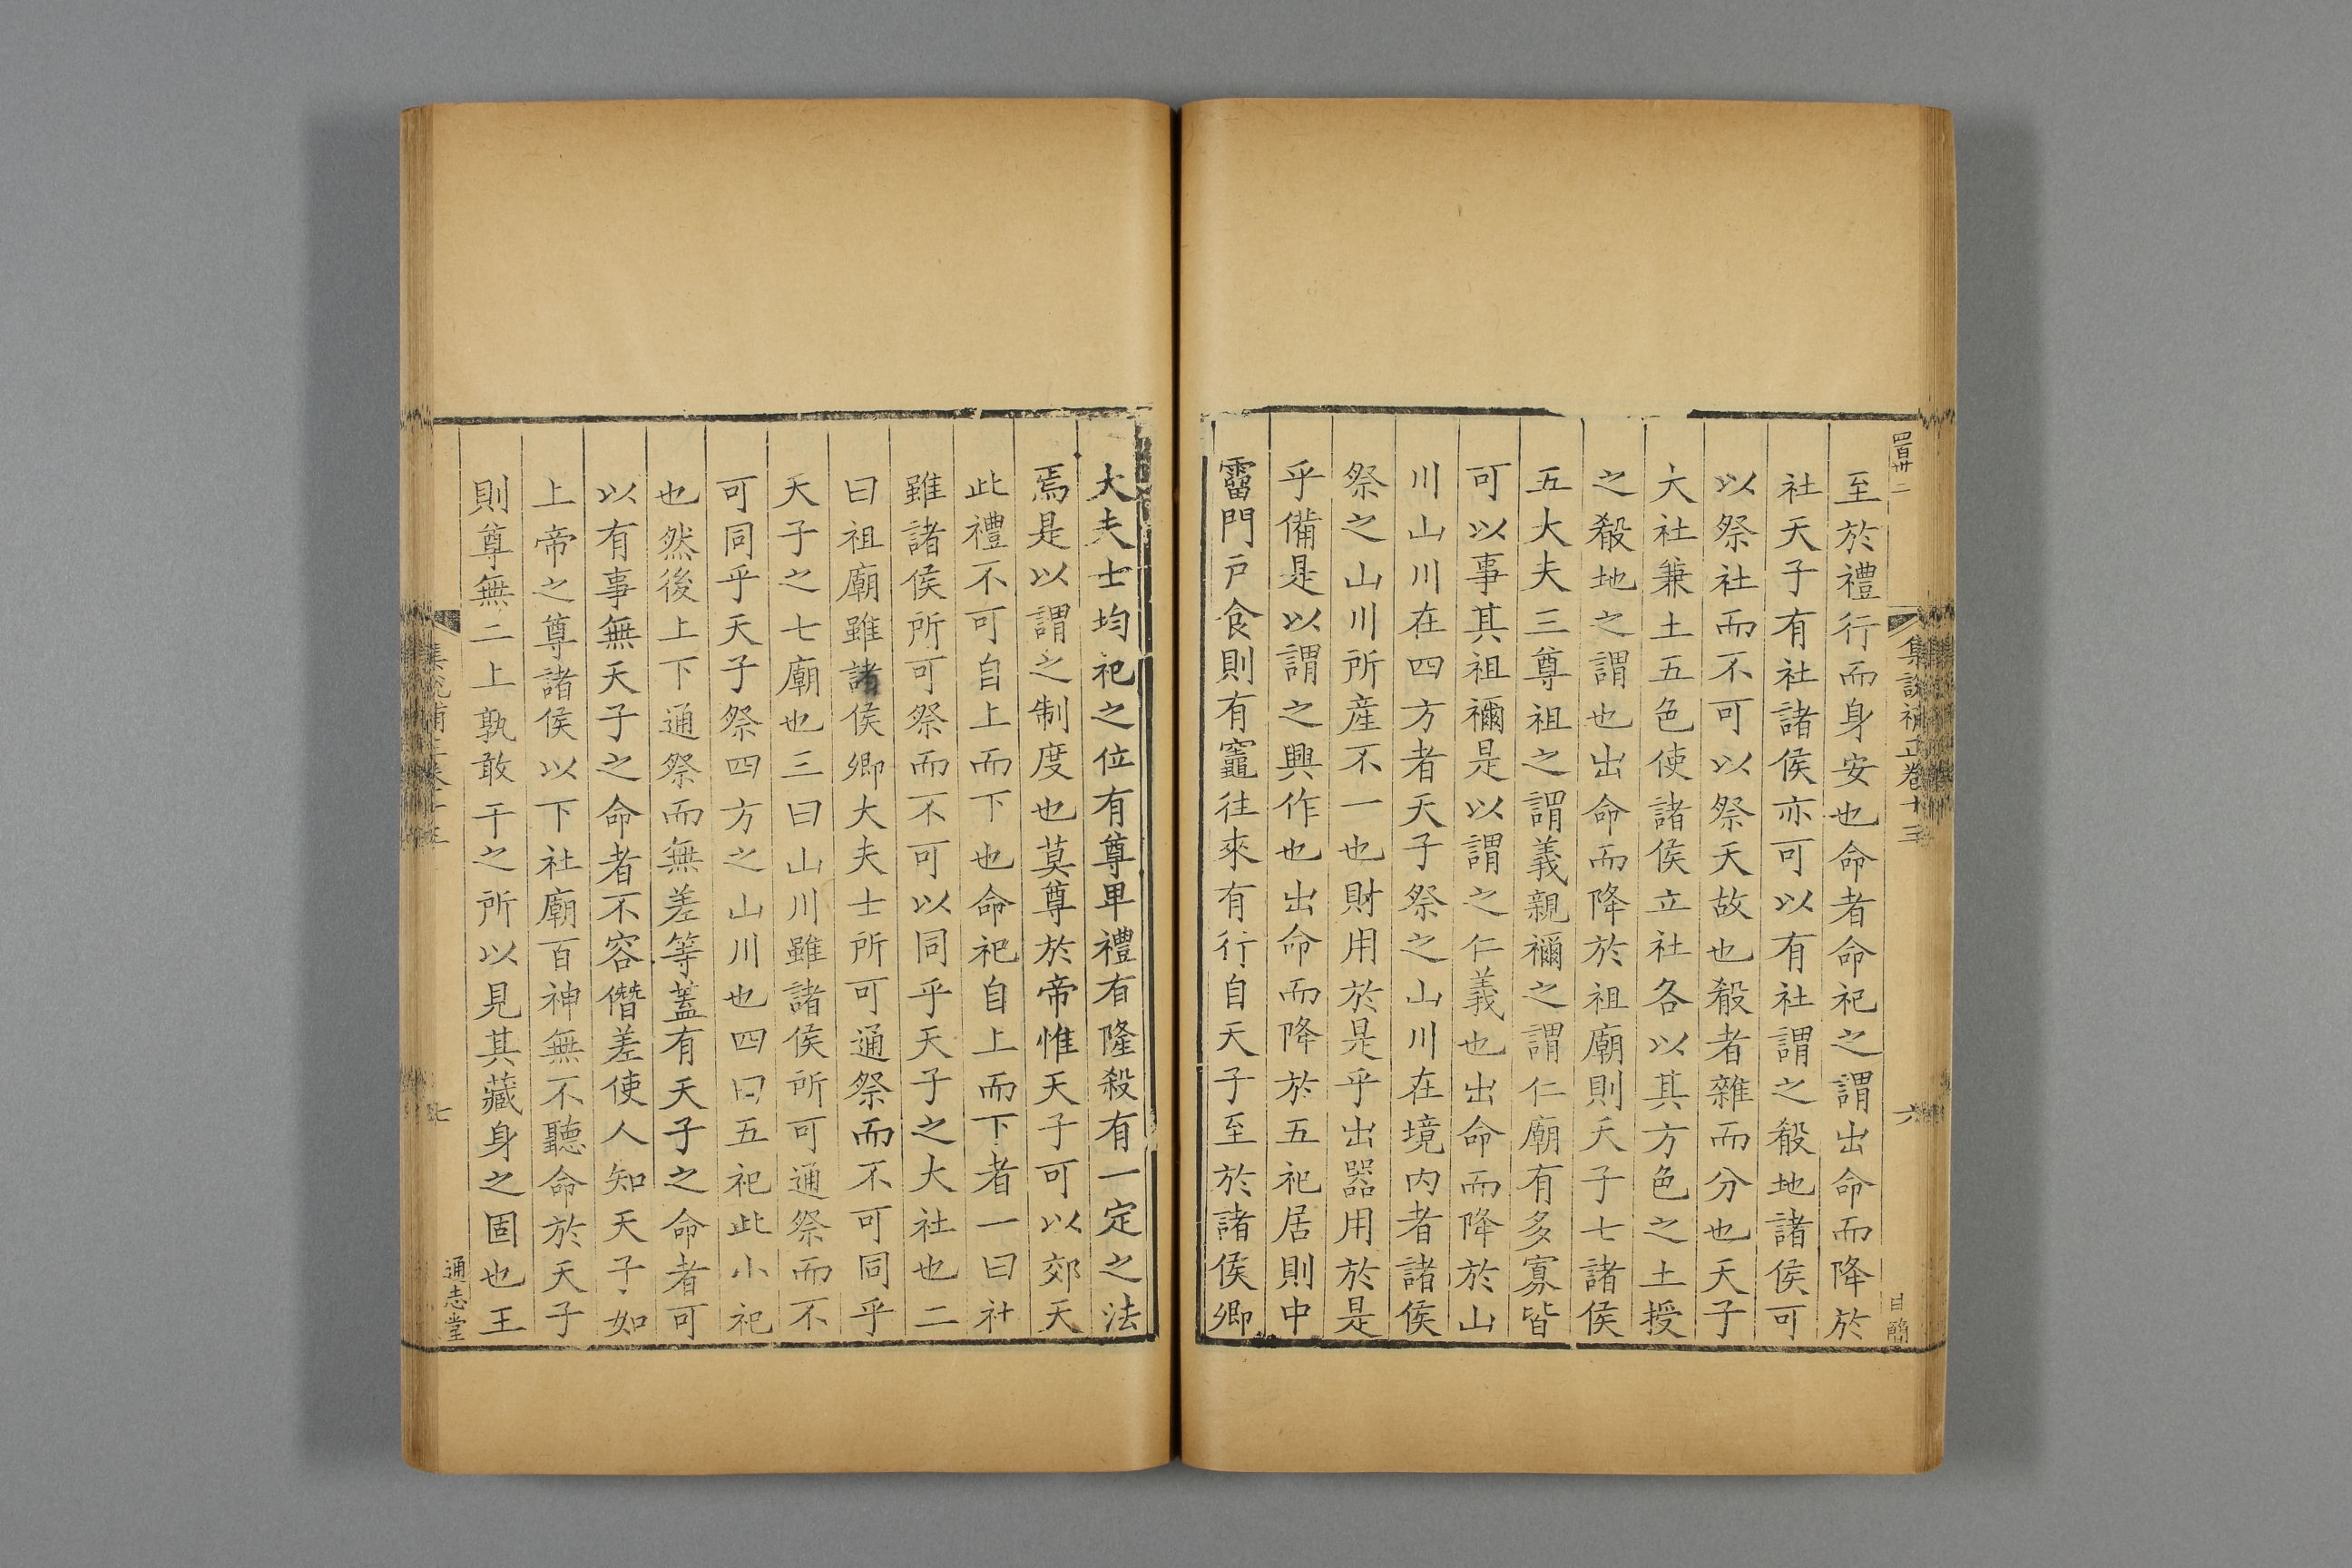 四百卅二
集說補正卷十三
六
至於禮行而身安也命者命祀之謂出命而降於
社天子有社諸侯亦可以有社謂之殽地諸侯可
以祭社而不可以祭天故也殽者雜而分也天子
大社兼土五色使諸侯立社各以其方色之土授
之殽地之謂也出命而降於祖廟則天子七諸侯
五大夫三尊祖之謂義親禰之謂仁廟有多寡皆
可以事其祖禰是以謂之仁義也出命而降於山
川山川在四方者天子祭之山川在境內者諸侯
祭之山川所産不一也財用於是乎出器用於是
乎備是以謂之興作也出命而降於五祀居則中
霤門戸食則有竈往來有行自天子至於諸侯卿
大夫士均祀之位有尊卑禮有隆殺有一定之法
焉是以謂之制度也莫尊於帝惟天子可以郊天
此禮不可自上而下也命祀自上而下者一曰社
雖諸侯所可祭而不可以同乎天子之大社也二
曰祖廟雖諸侯卿大夫士所可通祭而不可同乎
天子之七廟也三曰山川雖諸侯所可通祭而不
可同乎天子祭四方之山川也四曰五祀此小祀
也然後上下通祭而無差等蓋有天子之命者可
以有事無天子之命者不容僭差使人知天子如
上帝之尊諸侯以下社廟百神無不聽命於天子
則尊無二上孰敢干之所以見其藏身之固也王
七
通志堂